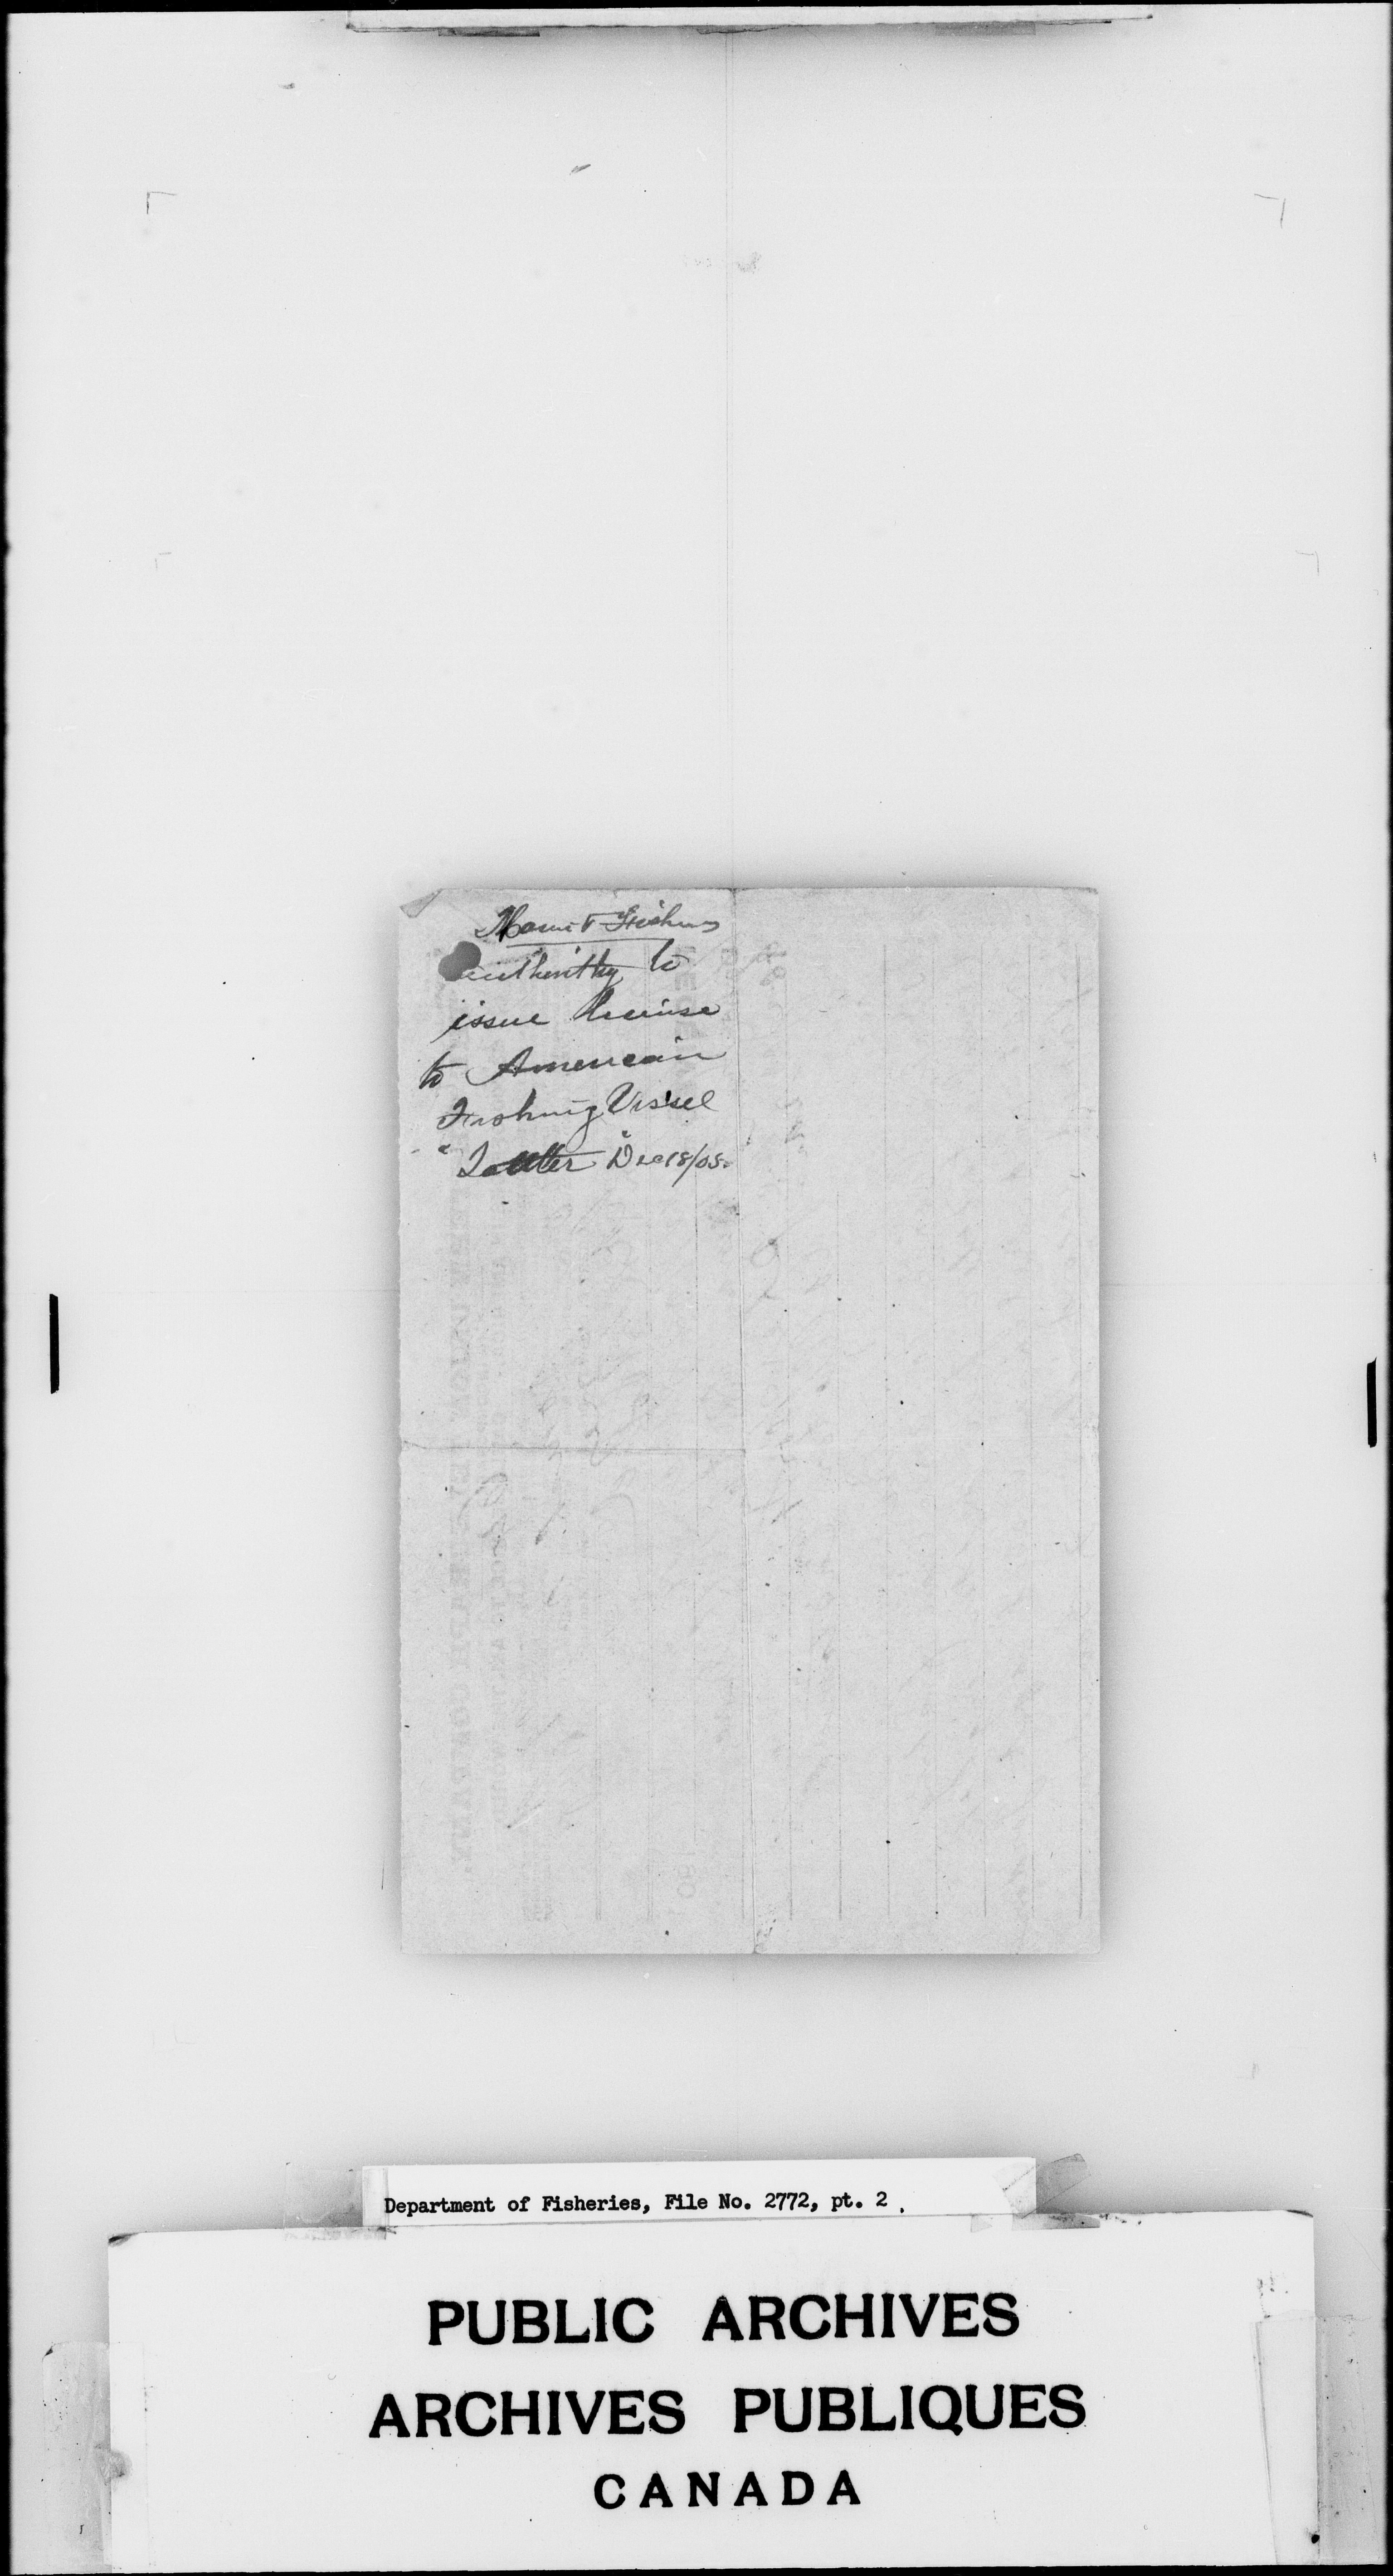 Marine & Fisheries
Authority to
issue license
to American
Fishing Vessel
" Dec 18/05.
Department of Fisheries, File No. 2772, pt. 2.
PUBLIC ARCHIVES
ARCHIVES PUBLIQUES
CANADA